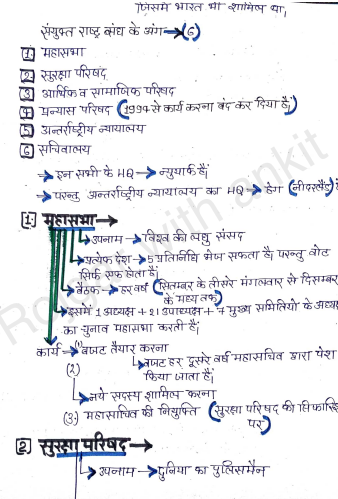 जिसमें भारत भी शामिल था,
संयुक्त राष्ट्र संघ के अंग → (6)
1 महासभा
2 सुरक्षा परिषद
3 आर्थिक व सामाजिक परिषद
4 प्रन्यास परिषद (1994 से कार्य करना बंद कर दिया है)
5 अन्तर्राष्ट्रीय न्यायालय
6 सचिवालय
→ इन सभी के HQ → न्यूयार्क है,
→ परन्तु अन्तर्राष्ट्रीय न्यायालय का HQ → हेग (नीदरलैंड) है
1. महासभा →
उपनाम → विश्व की लघु संसद
प्रत्येक देश → 5 प्रतिनिधि भेज सकता है, परन्तु वोट
सिर्फ एक होता है,
बैठक → हर वर्ष (सितम्बर के तीसरे मंगलवार से दिसम्बर
के मध्य तक)
इसमें 1 अध्यक्ष + 21 उपाध्यक्ष + 7 मुख्य समितियों के अध्यक्ष
का चुनाव महासभा करती है,
कार्य → (1) बजट तैयार करना
बजट हर दूसरे वर्ष महासचिव द्वारा पेश
किया जाता है,
(2) नये सदस्य शामिल करना
(3) महासचिव की नियुक्ति (सुरक्षा परिषद की सिफारिश
पर)
2 सुरक्षा परिषद →
उपनाम → दुनिया का पुलिसमैन
with ankit